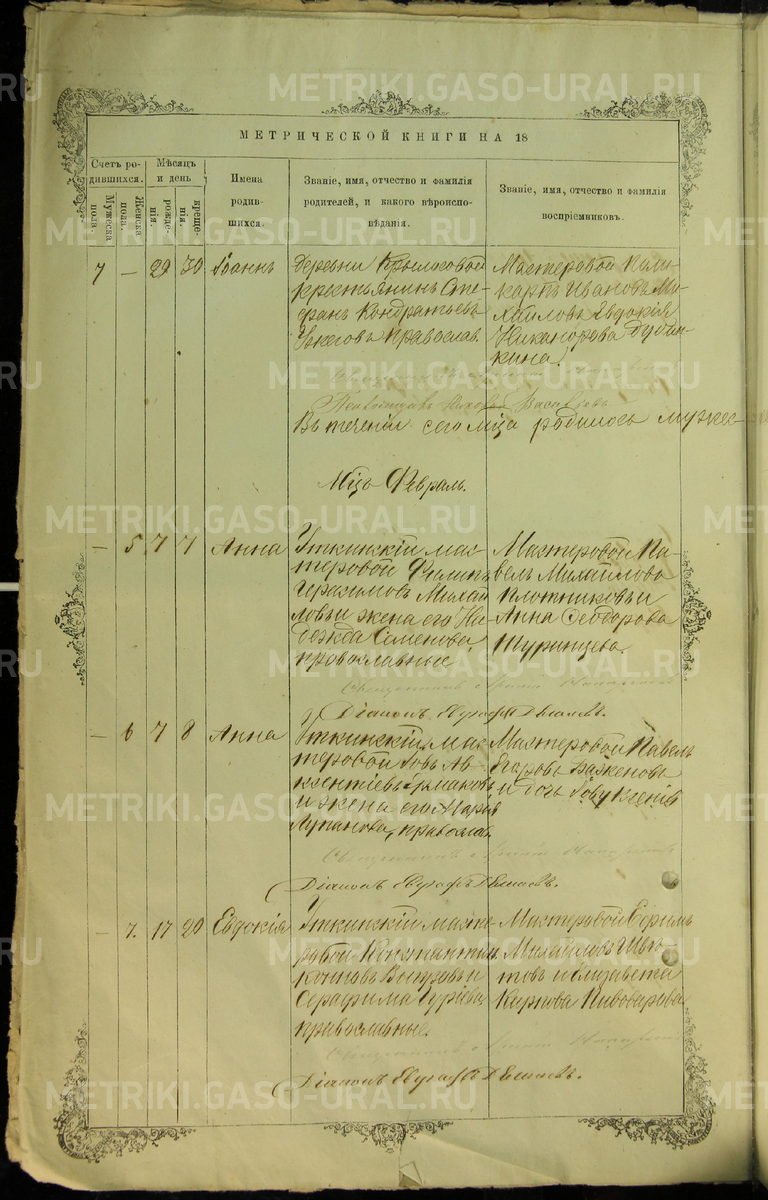 МЕТРИЧЕСКОЙ КНИГИ НА 18
Счетъ ро-
дившихся.
Мужеска
пола.
Женска
пола.
Мѣсяцъ
и день
рожде-
нія.
креще-
нія.
Имена
родив-
шихся.
Званіе, имя, отчество и фамилія
родителей, и какого вѣроиспо-
вѣданія.
Званіе, имя, отчество и фамилія
воспріемниковъ.
7 — 29 30 Іоаннъ
деревни Крыласовой
крестьянинъ Сте-
фанъ Кондратьевъ
православ.
Мастеровой Поли-
карпъ Ивановъ Ми-
хайловъ Евдокія
Никанорова Дубин-
кина
Въ теченіи сего мца родилось мужес-
Мцъ Февраль.
— 5 7 7 Анна
Уткинскій мас-
теровой Филипъ
Герасимовъ Михай
ловъ и жена его На-
дежда Семенова
православные
Мастеровой Па-
велъ Михайловъ
Плотниковъ и
Анна Ѳеодорова
Діаконъ
— 6 7 8 Анна
Уткинскій мас-
теровой Іовъ Ав-
ксентіевъ Ермаковъ
и жена его Марья
православ.
Мастеровой Павелъ
Егоровъ Баженовъ
и дочь Іову Ксенія
Діаконъ
— 7. 17 20 Евдокія
Уткинскій масте-
ровой Константинъ
и
Серафима Гуріева
православные.
Мастеровой Ефимъ
Михайловъ Швѣ-
товъ и Елизавета
Карпова Пивоварова
Діаконъ
METRIKI.GASO-URAL.RU